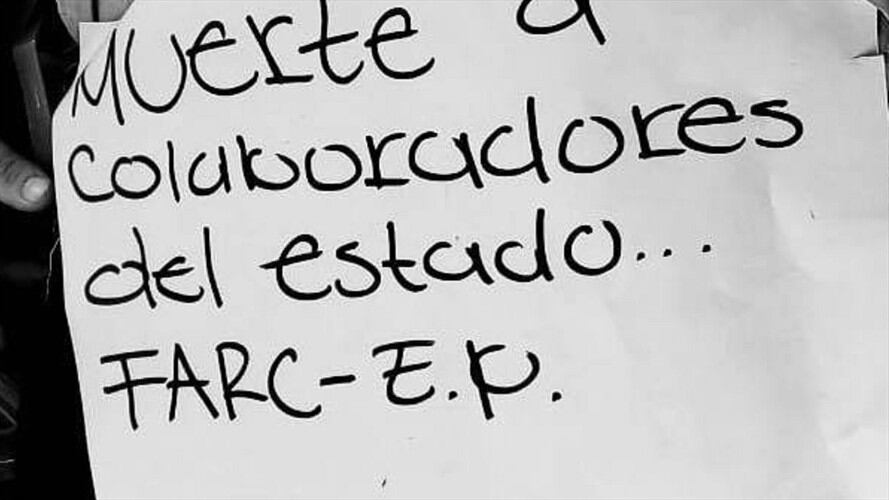 MUerte a
colaboradores
del estado...
FARC-E.p.